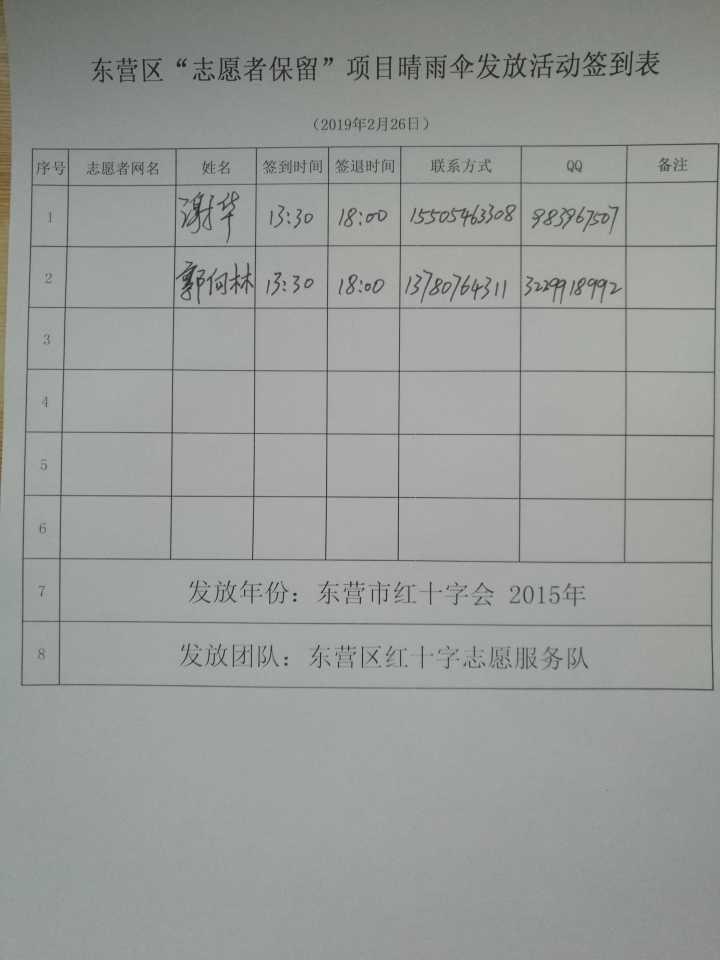 东营区“志愿者保留”项目晴雨伞发放活动签到表
（2019年2月26日）
序号 志愿者网名 姓名 签到时间 签退时间 联系方式 QQ 备注
1 谢华 13:30 18:00 15505463308 983967507
2 郭向林 13:30 18:00 13780764311 3229918992
3
4
5
6
7 发放年份：东营市红十字会 2015年
8 发放团队：东营区红十字志愿服务队